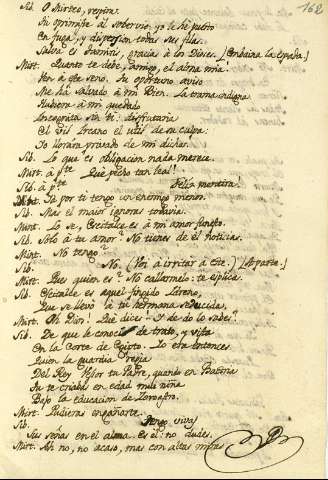 162
Sib. O Mirteo, respira.
Tu oprimiste al soberbio: yo le he puesto
En fuga, y dispersion todas sus filas.
Salva es Semiris, gracias à los Dioses. (Embaina la espada.)
Mirt. Quanto te debo, Amigo, el alma mia!
Ven à este seno. Tu oportuno aviso
Me ha salvado à mi Bien. La trama indigna
Hubiera à mi quedado
Incognita sin ti: disfrutaria
El vil Ircano el util de su culpa:
Yo lloraria privado de mi dicha.
Sib. Lo que es obligacion nada merece.
Mirt. à pte. Què pecho tan leal!
Sib. à pte. Feliz mentira!
Mirt. Ya por ti tengo un enemigo menor.
Sib. Mas el maior ignoras todavia.
Mirt. Lo se, Escitalce es à mi amor funesto.
Sib. Solo à tu amor? No tienes de èl noticias.
Mirt. No tengo.
Sib. No. (Voi à irritar à este.) (Aparte.)
Mirt. Pues quien es? No callarmelo: te esplica.
Sib. Escitalce es aquel fingido Idreno,
Que se llevò à tu hermana seducida.
Mirt. Oh Dios! Què dices! Y de do lo sabes?
Sib. De que le conocì de trato, y vista
En la Corte de Egipto. Yo era entonces
Quien la guardia regia
Del Rey Vesor tu Padre, quando en Bactria
Tu te criabas en edad mui niña
Bajo la educacion de Zoroastro.
Mirt. Pudieras engañarte.
Sib. Tengo vivas
Sus señas en el alma. Es èl: no dudes.
Mirt. Ah no, no acaso, mas con altas miras